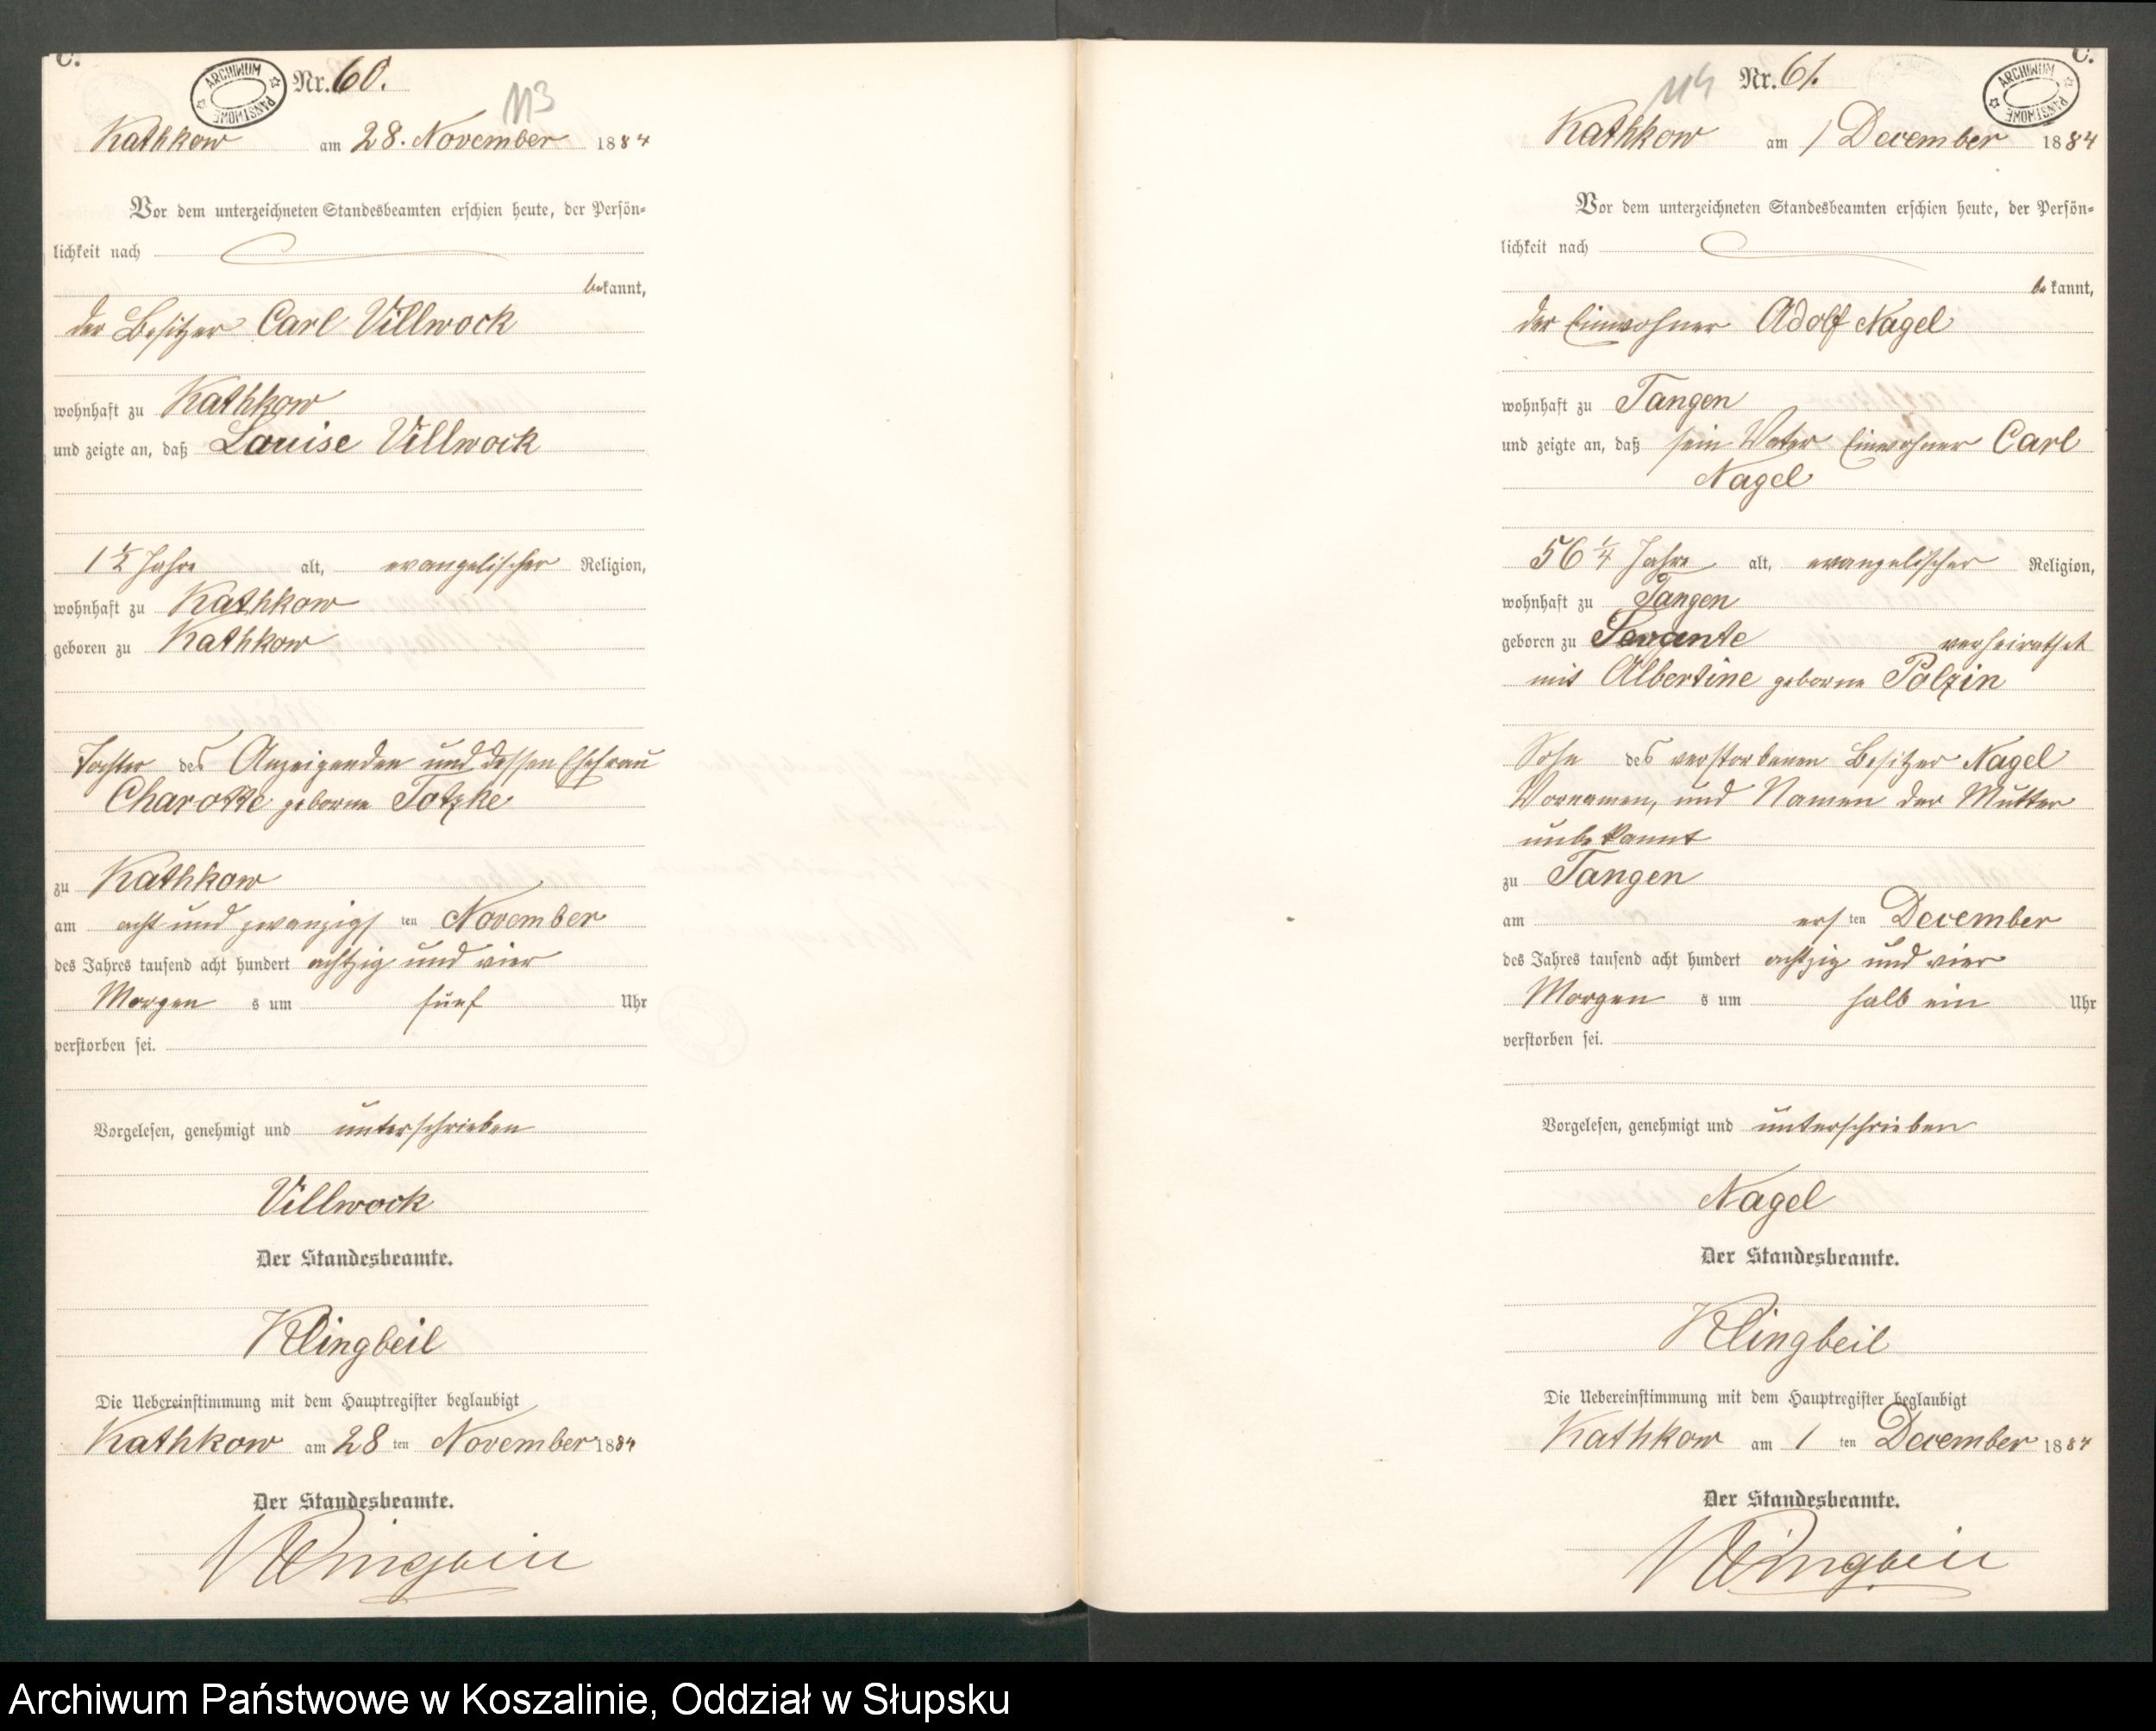 C.
ARCHIWUM PAŃSTWOWE
Nr. 60.
113
Kathkow am 28. November 1884
Vor dem unterzeichneten Standesbeamten erschien heute, der Persön-
lichkeit nach
bekannt,
der Besitzer Carl Villwock
wohnhaft zu Kathkow
und zeigte an, daß Louise Villwock
1 1/2 Jahre alt, evangelischer Religion,
wohnhaft zu Kathkow
geboren zu Kathkow
Tochter des Anzeigenden und dessen Ehefrau
Charotte geborne Totzke
zu Kathkow
am acht und zwanzigs ten November
des Jahres tausend acht hundert achtzig und vier
Morgen s um fünf Uhr
verstorben sei.
Vorgelesen, genehmigt und unterschrieben
Villwock
Der Standesbeamte.
Klingbeil
Die Uebereinstimmung mit dem Hauptregister beglaubigt
Kathkow am 28 ten November 1884
Der Standesbeamte.
Klingbeil
C.
ARCHIWUM PAŃSTWOWE
Nr. 61.
114
Kathkow am 1 December 1884
Vor dem unterzeichneten Standesbeamten erschien heute, der Persön-
lichkeit nach
bekannt,
der Einwohner Adolf Nagel
wohnhaft zu Tangen
und zeigte an, daß sein Vater Einwohner Carl
Nagel
56 1/4 Jahre alt, evangelischer Religion,
wohnhaft zu Tangen
geboren zu verheirathet
mit Albertine geborne Polzin
Sohn des verstorbenen Besitzer Nagel
Vornamen, und Namen der Mutter
unbekannt
zu Tangen
am ers ten December
des Jahres tausend acht hundert achtzig und vier
Morgen s um halb ein Uhr
verstorben sei.
Vorgelesen, genehmigt und unterschrieben
Nagel
Der Standesbeamte.
Klingbeil
Die Uebereinstimmung mit dem Hauptregister beglaubigt
Kathkow am 1 ten December 1884
Der Standesbeamte.
Klingbeil
Archiwum Państwowe w Koszalinie, Oddział w Słupsku